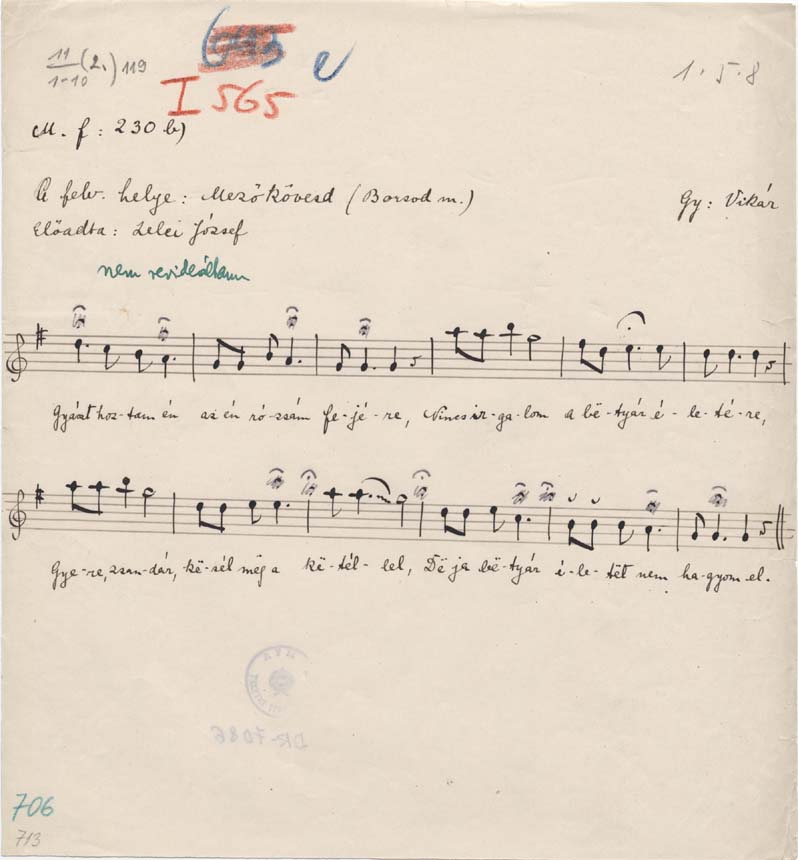 11/1-10 (2.) 119
I 565
1. 5. 8
M. f: 230 b)
A felv. helye: Mezőkövesd (Borsod m.)
Gy: Vikár
Előadta: Lelei József
nem revideáltam
Gyászt hoz-tam én az én ró-zsám fe-jé-re, Nincs ir-ga-lom a bë-tyár é-le-té-re,
Gye-re, zsan-dár, kë-sél még a kë-tél-lel, Dë ja bë-tyár é-le-tët nem ha-gyom el.
DR-7086
706
713